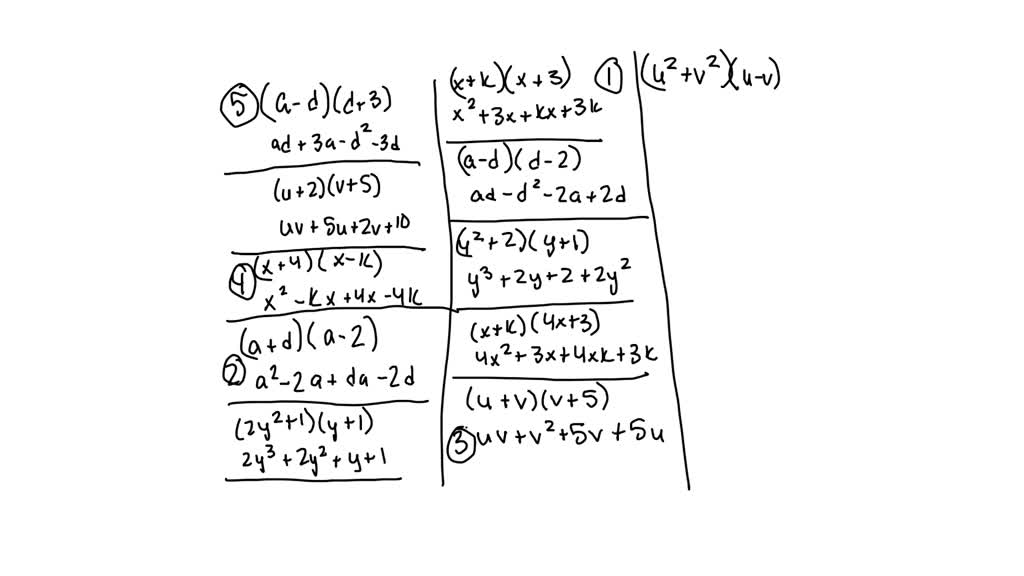 ⑤ (a-d)(d+3)
ad + 3a - d² - 3d
(u+2)(v+5)
uv + 5u + 2v + 10
④ (x+4)(x-k)
x² - kx + 4x - 4k
(a+d)(a-2)
② a² - 2a + da - 2d
(2y²+1)(y+1)
2y³ + 2y² + y + 1
(x+k)(x+3) ①
x² + 3x + kx + 3k
(a-d)(d-2)
ad - d² - 2a + 2d
(y²+2)(y+1)
y³ + 2y + 2 + 2y²
(x+k)(4x+3)
4x² + 3x + 4xk + 3k
(u+v)(v+5)
③ uv + v² + 5v + 5u
(u²+v²)(u-v)